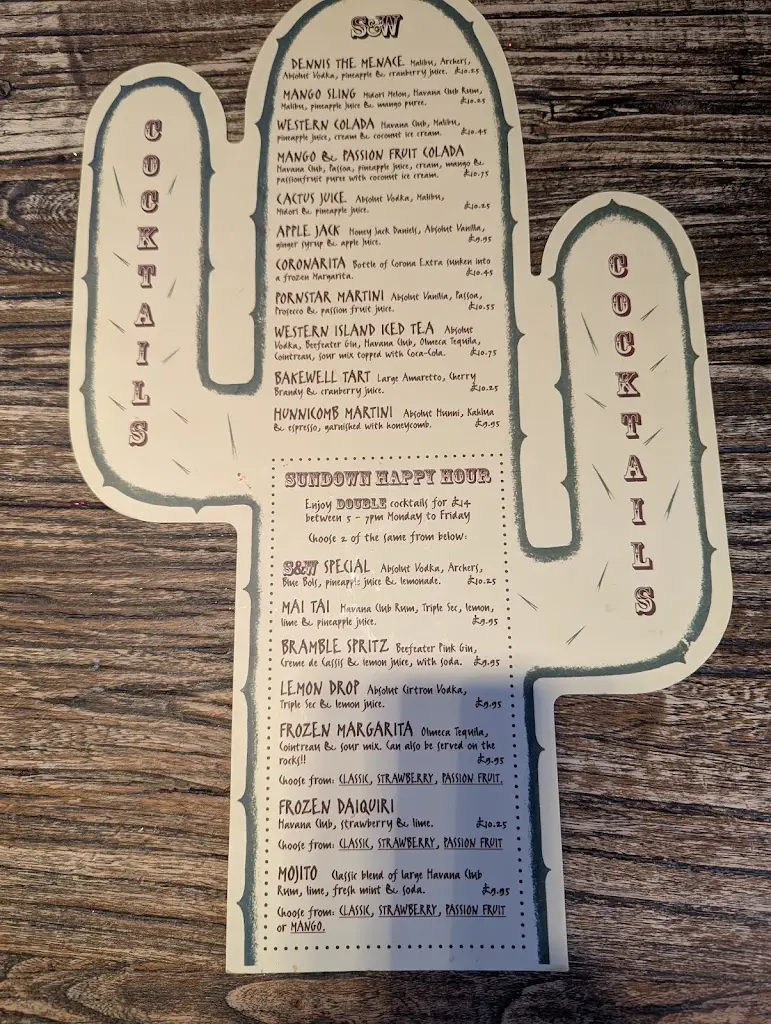 S&W
DENNIS THE MENACE Malibu, Archers,
Absolut Vodka, pineapple & cranberry juice. £10.25
MANGO SLING Midori Melon, Havana Club Rum,
Malibu, pineapple juice & mango puree. £10.25
WESTERN COLADA Havana Club, Malibu,
pineapple juice, cream & coconut ice cream. £10.45
MANGO & PASSION FRUIT COLADA
Havana Club, Passoa, pineapple juice, cream, mango &
passionfruit puree with coconut ice cream. £10.75
CACTUS JUICE Absolut Vodka, Malibu,
Midori & pineapple juice. £10.25
APPLE JACK Honey Jack Daniels, Absolut Vanilla,
ginger syrup & apple juice. £9.95
CORONARITA Bottle of Corona Extra sunken into
a frozen Margarita. £10.45
PORNSTAR MARTINI Absolut Vanilla, Passoa,
Prosecco & passion fruit juice. £10.55
WESTERN ISLAND ICED TEA Absolut
Vodka, Beefeater Gin, Havana Club, Olmeca Tequila,
Cointreau, sour mix topped with Coca-Cola. £10.75
BAKEWELL TART Large Amaretto, Cherry
Brandy & cranberry juice. £10.25
HUNNICOMB MARTINI Absolut Hunni, Kahlua
& espresso, garnished with honeycomb. £9.95
SUNDOWN HAPPY HOUR
Enjoy DOUBLE cocktails for £14
between 5 - 7pm Monday to Friday
Choose 2 of the same from below:
S&W SPECIAL Absolut Vodka, Archers,
Blue Bols, pineapple juice & lemonade. £10.25
MAI TAI Havana Club Rum, Triple Sec, lemon,
lime & pineapple juice. £9.95
BRAMBLE SPRITZ Beefeater Pink Gin,
Creme de Cassis & lemon juice, with soda. £9.95
LEMON DROP Absolut Cirtron Vodka,
Triple Sec & lemon juice. £9.95
FROZEN MARGARITA Olmeca Tequila,
Cointreau & sour mix. Can also be served on the
rocks!! £9.95
Choose from: CLASSIC, STRAWBERRY, PASSION FRUIT.
FROZEN DAIQUIRI
Havana Club, strawberry & lime. £10.25
Choose from: CLASSIC, STRAWBERRY, PASSION FRUIT
MOJITO Classic blend of large Havana Club
Rum, lime, fresh mint & soda. £9.95
Choose from: CLASSIC, STRAWBERRY, PASSION FRUIT
or MANGO.
COCKTAILS
COCKTAILS